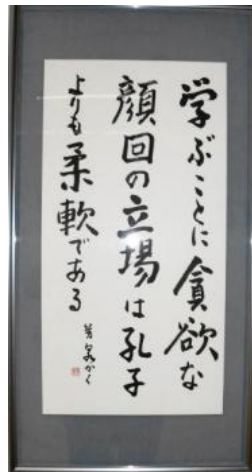 学ぶことに貪欲な
顔回の立場は孔子
よりも柔軟である